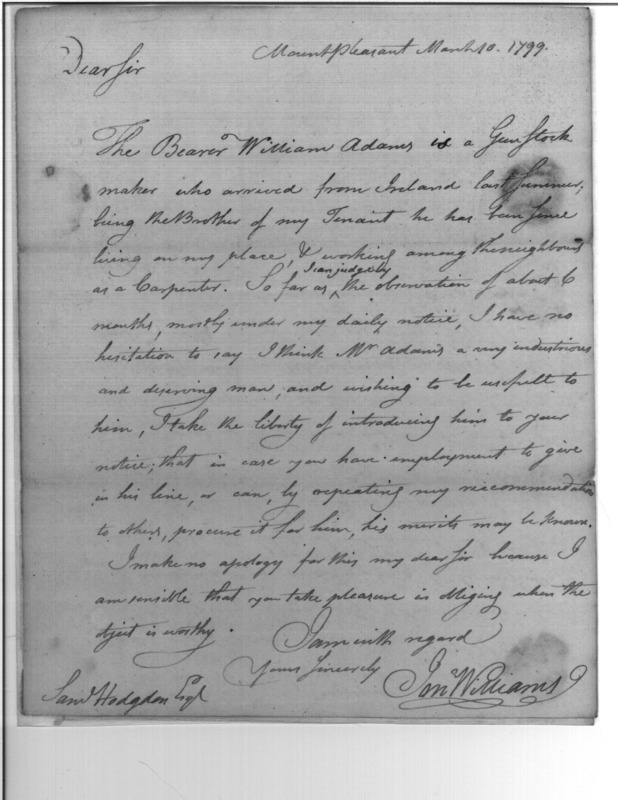 Mount Pleasant March 10. 1799.
Dear Sir
The Bearer William Adams is a Gun Stock
maker who arrived from Ireland last Summer;
being the Brother of my Tenant he has been since
living on my place, & working among the neighbours
as a Carpenter. So far as I can judge by the observation of about 6
months, mostly under my daily notice, I have no
hesitation to say I think Mr Adams a very industrious
and deserving man, and wishing to be usefull to
him, I take the liberty of introducing him to your
notice; that in case you have employment to give
in his line, or can, by repeating my reccommendation
to others, procure it for him, his merits may be known.
I make no apology for this my dear Sir because I
am sensible that you take pleasure in obliging when the
object is worthy.
I am with regard
Yours Sincerely
Jon Williams
Saml Hodgdon Esqr